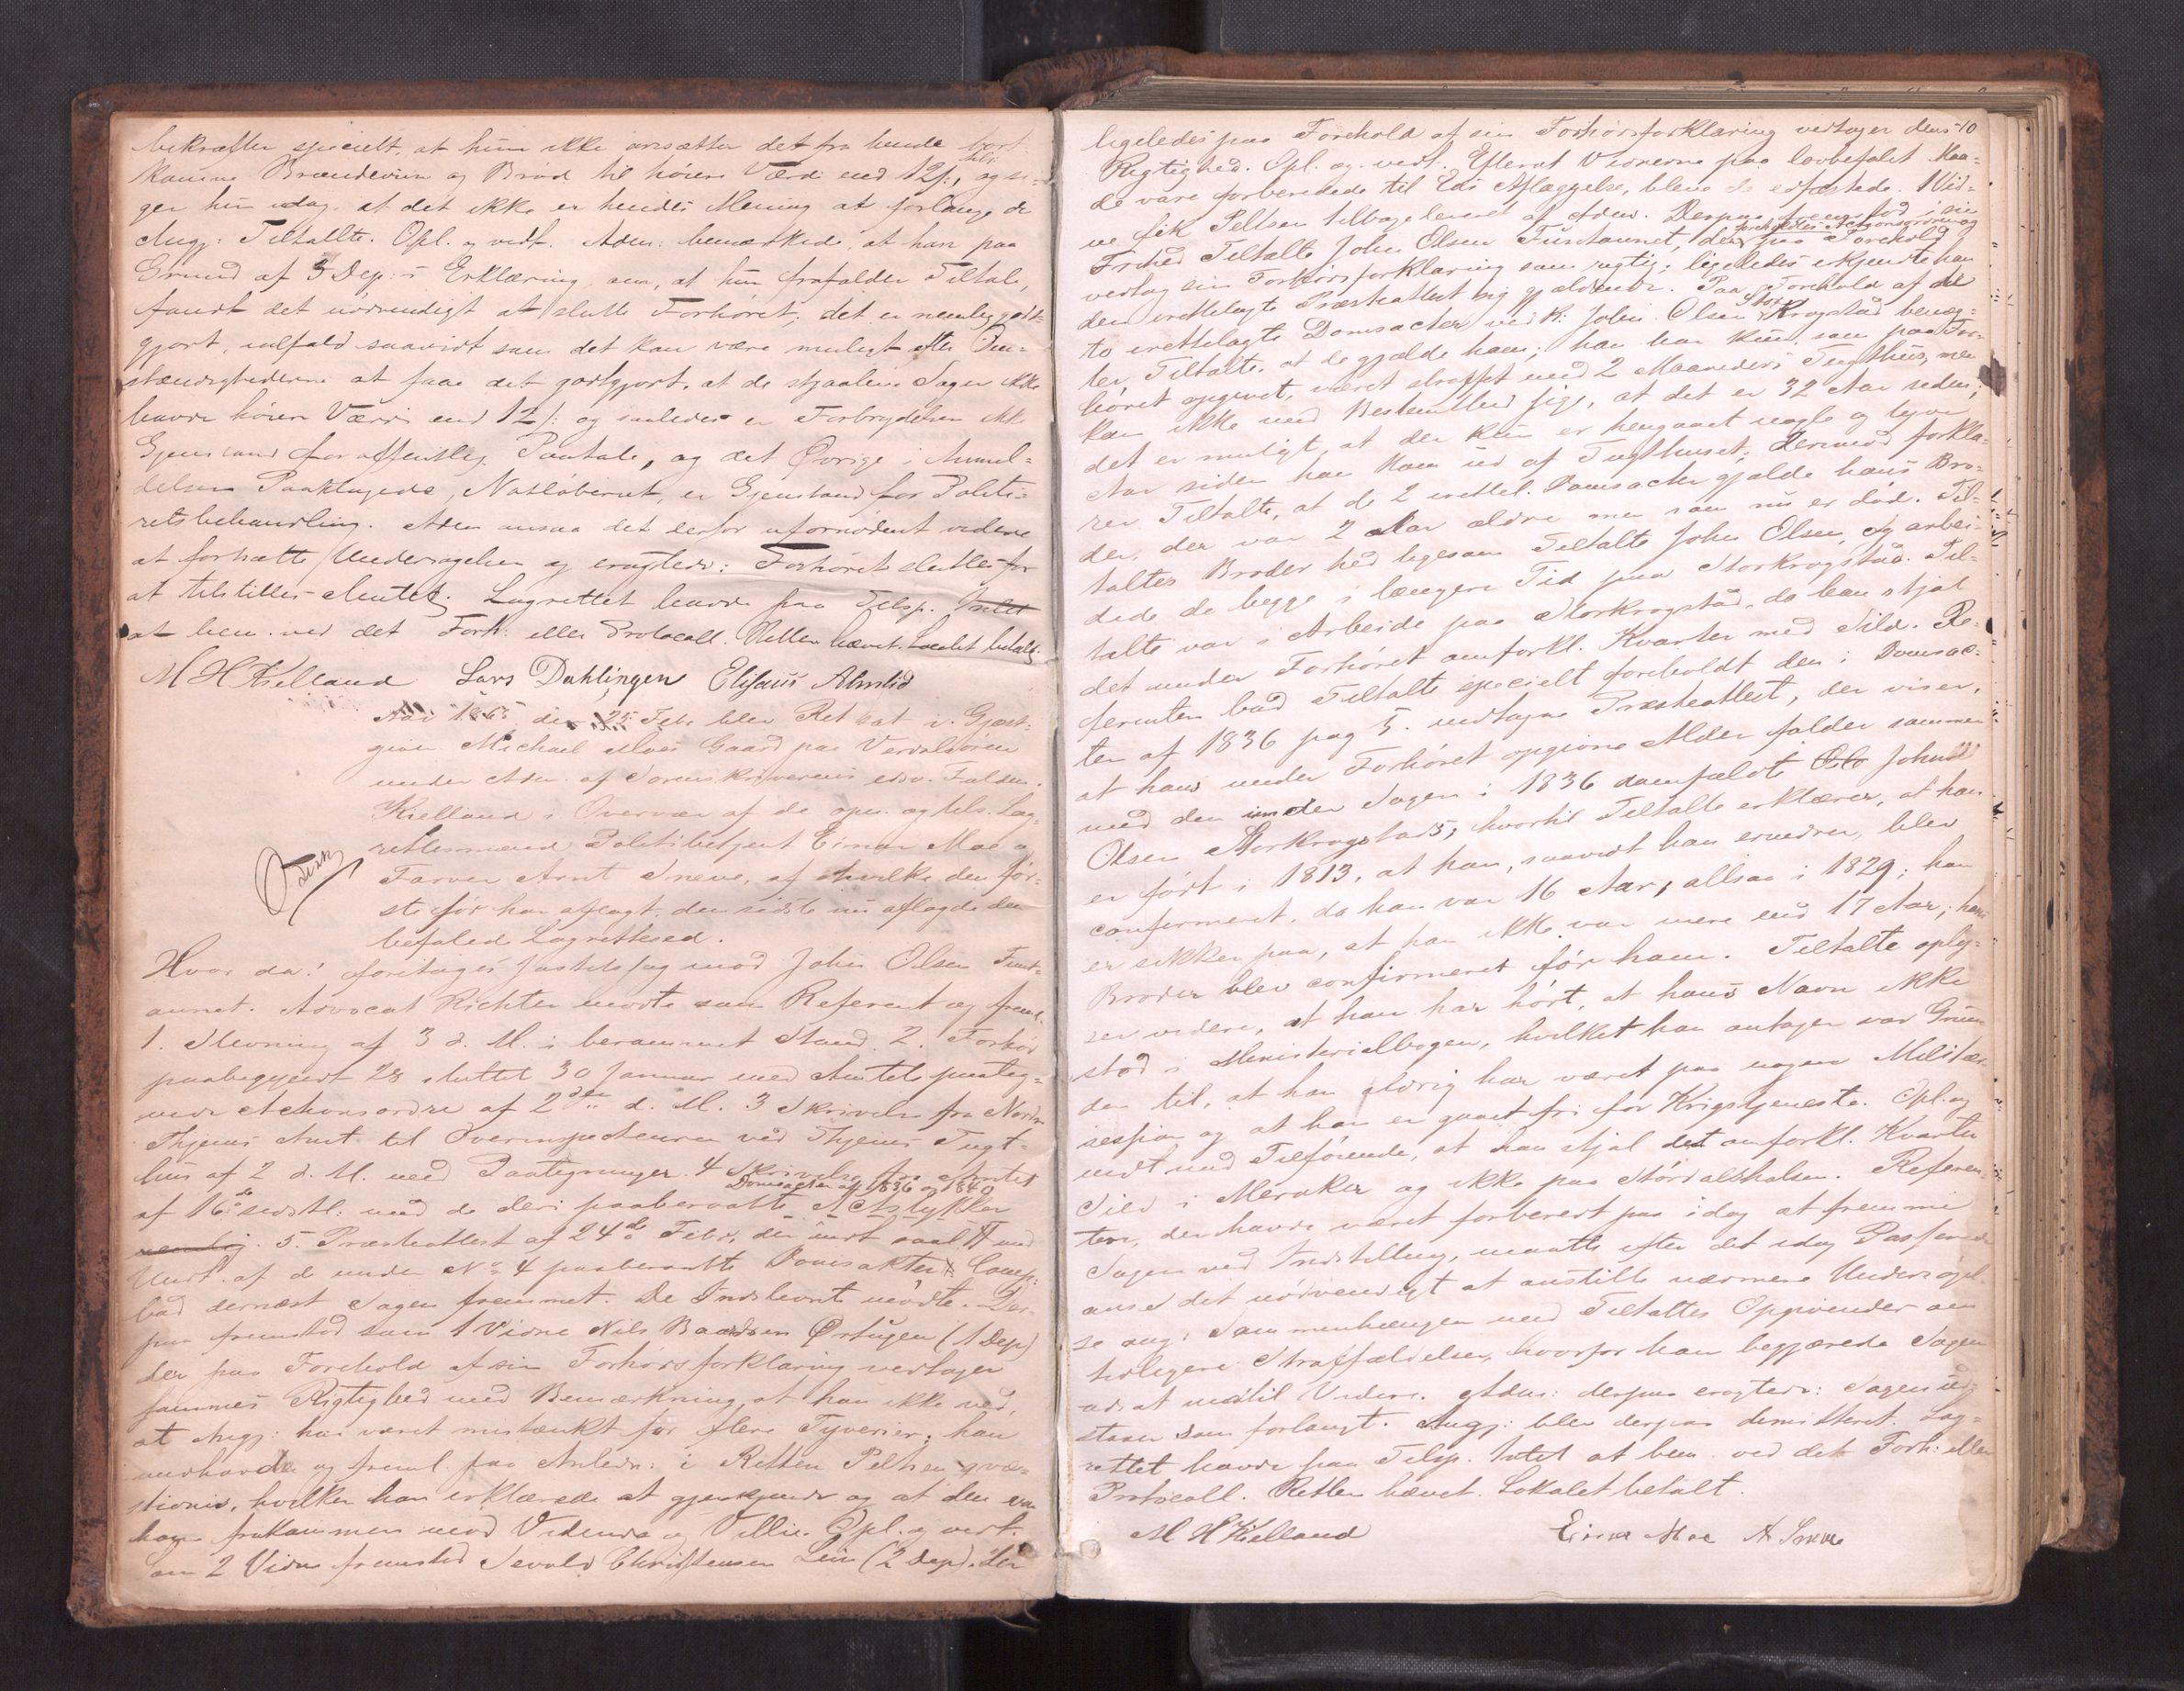 bekræfter specielt, at hun ikke ansætter det fra hende bort-
komne Brændeviin og Brød til høiere Værdi end 12 /: og si-
ger hun idag at det ikke er hendes Mening at forlange de
Angj: Tiltalte. Opl. og vedt. Adm: bemærkede, at han paa
Grund af 3 Dep:s Erklæring om, at hun frafalder Tiltale,
fandt det nødvendigt at slutte Forhøret; det er nemlig godt-
gjort, ialfald saavidt som det kan være muligt efter Om-
stændighederne at faae det godtgjort, at de stjaalne Sager ikke
havde høiere Værdi end 12 /: og saaledes er Forbrydelsen ikke
Gjenstand for offentlig Paatale, og det Øvrige i Anmel-
delsen Paaklagede, Natløberiet, er Gjenstand for Politi-
retsbehandling. Adm ansaa det derfor ufornødent videre
at fortsætte Undersøgelsen og eragtede: Forhøret sluttes for
at tilstilles Amtet. Lagrettet havde paa Tilsp. Intet
at bem. ved det Forh: eller Protocoll. Retten hævet. Localet betalt.
M H Kielland Lars Dahlingen Elisæus Almlid
Aar 1865 den 25 Febr. blev Ret sat v. Gjæst-
giver Michael Moes Gaard paa Verdalsøren
under Adm. af Sorenskriverens edsv. Fuldm.
Kielland i Overvær af de opn. og tils. Lag-
rettesmænd Politibetjent Einar Moe og
Farver Arnt Sneve, af hvilke den før-
ste før har aflagt, den sidste nu aflagde den
befalede Lagretteseed.
Hvor da! foretages Justitssag mod John Olsen Funt-
aunet. Advocat Richter mødte som Referent og freml.
1. Stevning af 3 d. M. i berammet Stand. 2. Forhør
paabegyndt 28 sluttet 30 Januar med Amtets paateg-
nede Actionsordre af 2den d. M. 3 Skrivelse fra Nordre
Thjems Amt til Overinspecteuren ved Thjems Tugt-
huus af 2 d. M. med Paategninger. 4 Skrivelse fra Amtet
Domsacten af 1836 og 1840
af 16de sidstl. med de deri paaberaabte Actstykker
nemlig. 5. Præsteattest af 24de Febr.
Undt. af de under No 4 paaberaabte Domsakter. Comp:
bad dernæst Sagen fremmet. De Indstevnte mødte. Der-
paa fremstod som 1 Vidne Nils Baardsen Ørtugen (1 Dep)
der paa Forehold af sin Forhørsforklaring vedtager
sammes Rigtighed med Bemærkning, at han ikke ved,
at Angj: har været mistænkt for flere Tyverier; han
medhavde og freml. paa Anledn: i Retten Peltsen qvæ-
stionis, hvilken han erklærede at gjenkjende og at den var
ham frakommen mod Vidende og Villie. Opl. og vedt.
Som 2 Vidne fremstod Sevald Christensen Lein (2 Dep). Der
10
ligeledes paa Forehold af sin Forhørsforklaring vedtager dens
Rigtighed. Opl. og vedt. Efterat Vidnerne paa lovbefalet Maa-
de vare forberedede til Eds Aflæggelse, bleve de edfæstede. 1 Vid-
ne fik Peltsen tilbageleveret af Adm. Derpaa fremstod i sin
foreholdtes Actionsordren og
Frihed Tiltalte John Olsen Funtaunet, der paa Forehold
vedtog sin Forhørsforklaring som rigtig; ligeledes erkjendte han
den irettelagte Præsteattest sig gjældende. Paa Forehold af de
to irettelagte Domsacter ved k: John Olsen Stor Krogstad benæg-
ter Tiltalte, at de gjælde ham; han har kun, som paa For-
høret opgivet, været straffet med 2 Maaneders Tugthus, men
kan ikke med Bestemthed sige, at det er 32 Aar siden;
det er muligt, at der kun er hengaaet nogle og tyve
Aar siden han kom ud af Tugthuset; derimod forkla-
rer Tiltalte, at de 2 irettel. Domsacter gjælde hans Bro-
der, der var 2 Aar ældre men som nu er død. Til-
taltes Broder hed ligesom Tiltalte John Olsen, og arbei-
dede de begge i længere Tid paa Storkrogstad. Til-
talte var i Arbeide paa Storkrogstad, da han stjal
det under Forhøret omforkl. Kvarter med Sild. Re-
ferenten bad Tiltalte specielt foreholdt den i Domsac-
ten af 1836 pag 5. indtagne Præsteattest, der viser,
at hans under Forhøret opgivne Alder falder sammen
med den under Sagen i 1836 domfældte Ole John
Olsen Storkrogstads, hvortil Tiltalte erklærer, at han
er født i 1813, at han, saavidt han erindrer, blev
confirmeret, da han var 16 Aar, altsaa i 1829; han
er sikker paa, at han ikke var mere end 17 Aar; hans
Broder blev confirmeret før ham. Tiltalte oply-
ser videre, at han har hørt, at hans Navn ikke
stod i Ministerialbogen, hvilket han antager var Grun-
den til, at han aldrig har været paa nogen Militær-
session og at han er gaaet fri for Krigstjeneste. Opl. og
vedt. med Tilføiende, at han stjal det omforkl. Kvarter
Sild i Meraker og ikke paa Størdalshalsen. Referen-
ten, der havde været forberedt paa idag at fremme
Sagen ved Indstilling, maatte efter det idag Passerede
anse det nødvendigt at anstille nærmere Undersøgel-
se ang: Sammenhængen med Tiltaltes Opgivender om
tidligere Straffældelser, hvorfor han begjærede Sagen
udsat indtil Videre. Adm: derpaa eragtede: Sagen ud-
staar som forlangt. Angj: blev derpaa dimitteret. Lag-
rettet havde paa Tilsp. Intet at bem. ved det Forh: eller
Protocoll. Retten hævet. Lokalet betalt.
M H Kielland Einar Moe A Sneve